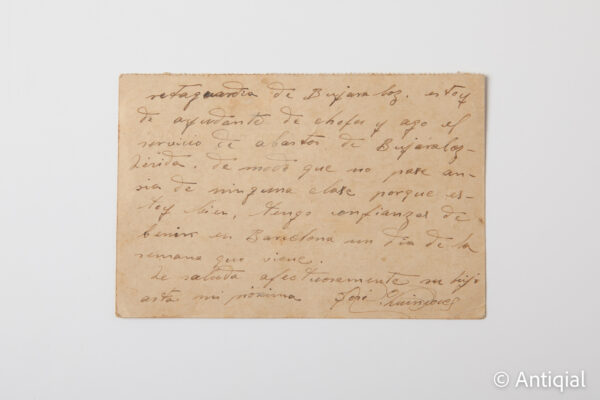 retaguardia de Bujaraloz. estoy
de ayudante de chofer y ago el
servicio de abastos de Bujaraloz-
Lerida. de modo que no pase an-
sia de ninguna clase porque es-
toy bien, tengo confianzas de
benir en Barcelona un día de la
semana que viene.
Le saluda afectuosamente su hijo
asta mi próxima José
© Antiqial